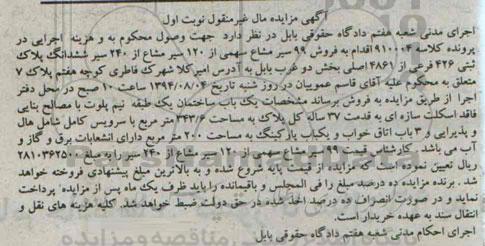 آگهی مزایده مال غیرمنقول نوبت اول
اجرای مدنی شعبه هفتم دادگاه حقوقی بابل در نظر دارد جهت وصول محکوم به و هزینه اجرایی در
پرونده کلاسه 910004 اقدام به فروش 99 سیر مشاع سهمی از 120 سیر مشاع از 240 سیر ششدانگ پلاک
ثبتی 426 فرعی از 4861 اصلی بخش دو غرب بابل به آدرس امیرکلا شهرک فاطری کوچه هفتم پلاک 7
متعلق به محکوم علیه آقای قاسم عموییان در روز شنبه تاریخ 1394/08/04 ساعت 10 صبح در محل دفتر
اجرا از طریق مزایده به فروش برساند مشخصات یک باب ساختمان یک طبقه نیم پلوت با مصالح بنایی
فاقد اسکلت سازه ای به قدمت 37 ساله کل پلاک به مساحت 343/6 متر مربع با سرویس کامل شامل هال
و پذیرایی و 3 باب اتاق خواب و یکباب پارکینگ به مساحت 200 متر مربع دارای انشعابات برق و گاز و
آب می باشد . کارشناس قیمت 99 سیر مشاع سهمی از 120 سیر مشاع از 240 سیر را به مبلغ 281036250
ریال تعیین نموده است که مزایده از قیمت پایه شروع شده و به بالاترین مبلغ پیشنهادی فروخته خواهد
شد . برنده مزایده ده درصد مبلغ را فی المجلس و باقیمانده را باید ظرف یک ماه پس از مزایده پرداخت
نماید و در صورت انصراف ده درصد اخذ شده در حق دولت ضبط خواهد شد. کلیه هزینه های نقل و
انتقال سند به عهده خریدار است.
اجرای احکام مدنی شعبه هفتم دادگاه حقوقی بابل